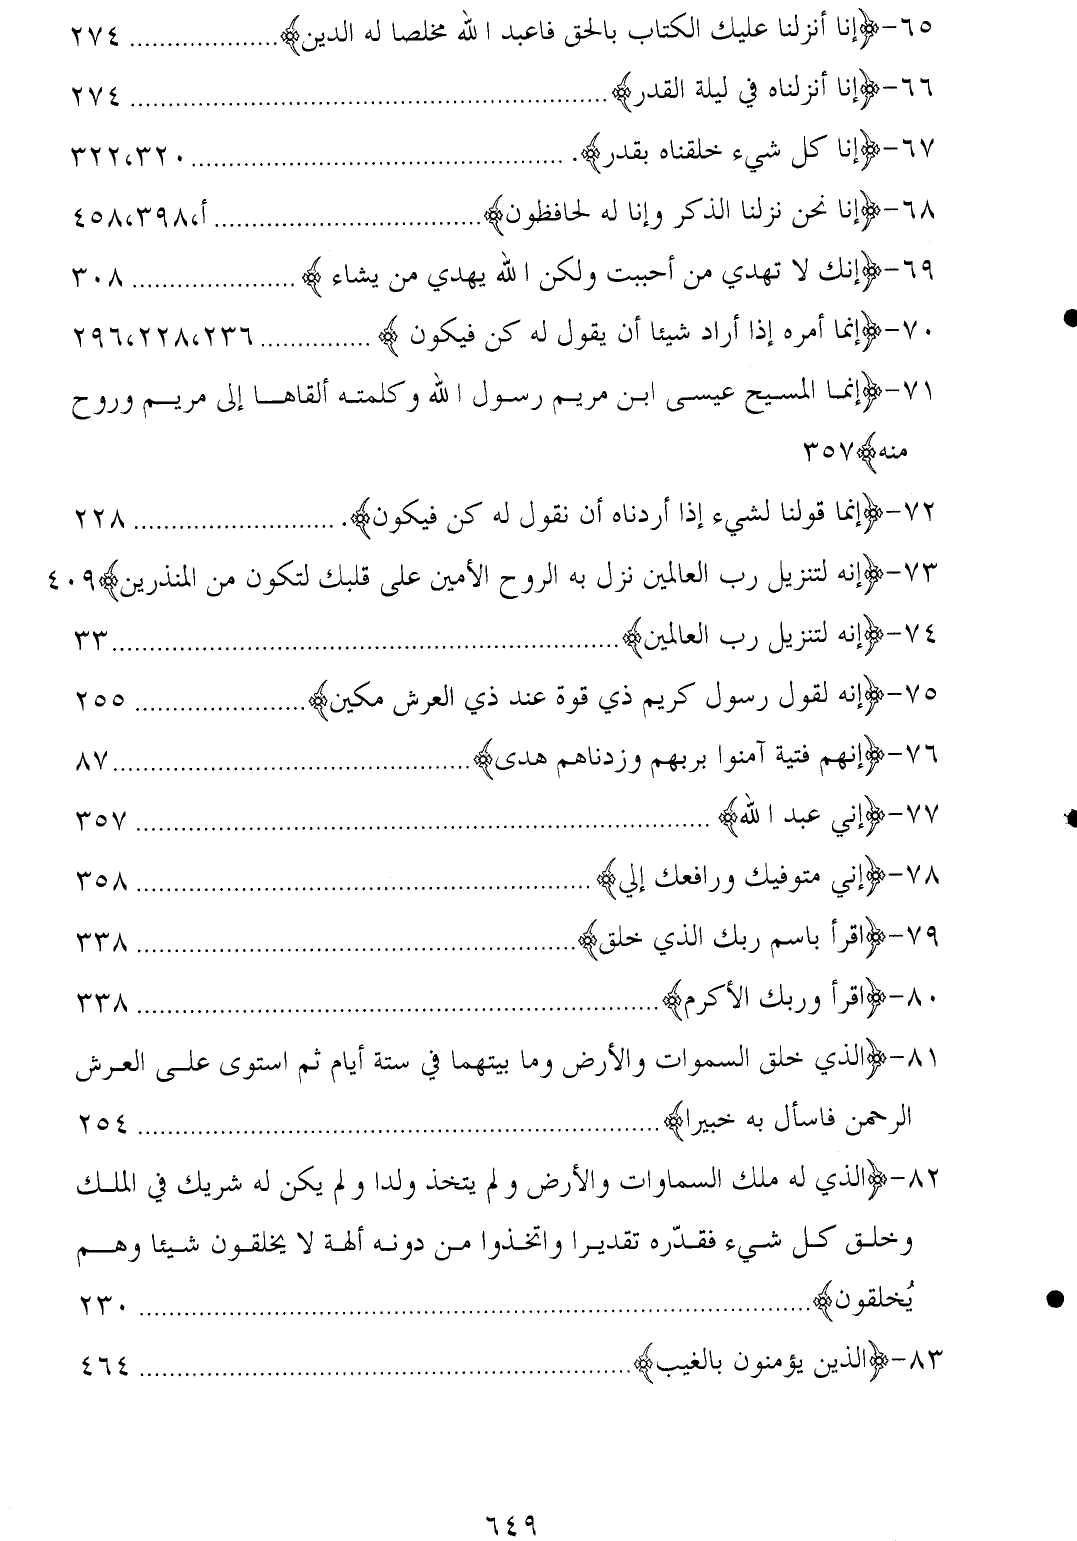 ٦٥-﴿إنا أنزلنا عليك الكتاب بالحق فاعبد الله مخلصا له الدين﴾..................... ٢٧٤
٦٦-﴿إنا أنزلناه في ليلة القدر﴾..................... ٢٧٤
٦٧-﴿إنا كل شيء خلقناه بقدر﴾. ..................... ٣٢٢،٣٢٠
٦٨-﴿إنا نحن نزلنا الذكر وإنا له لحافظون﴾..................... أ،٤٥٨،٣٩٨
٦٩-﴿إنك لا تهدي من أحببت ولكن الله يهدي من يشاء ﴾ ..................... ٣٠٨
٧٠-﴿إنما أمره إذا أراد شيئا أن يقول له كن فيكون ﴾ ............... ٢٩٦،٢٢٨،٢٣٦
٧١-﴿إنمـا المسـيح عيسـى ابـن مريـم رسـول الله وكلمتـه ألقاهـا إلى مريـم وروح
منه﴾٣٥٧
٧٢-﴿إنما قولنا لشيء إذا أردناه أن نقول له كن فيكون﴾. ..................... ٢٢٨
٧٣-﴿إنه لتنزيل رب العالمين نزل به الروح الأمين على قلبك لتكون من المنذرين﴾٤٠٩
٧٤-﴿إنه لتنزيل رب العالمين﴾..................... ٣٣
٧٥-﴿إنه لقول رسول كريم ذي قوة عند ذي العرش مكين﴾..................... ٢٥٥
٧٦-﴿إنهم فتية آمنوا بربهم وزدناهم هدى﴾..................... ٨٧
٧٧-﴿إني عبد الله﴾ ..................... ٣٥٧
٧٨-﴿إني متوفيك ورافعك إلي﴾ ..................... ٣٥٨
٧٩-﴿اقرأ باسم ربك الذي خلق﴾..................... ٣٣٨
٨٠-﴿اقرأ وربك الأكرم﴾..................... ٣٣٨
٨١-﴿الذي خلق السموات والأرض وما بيتهما في ستة أيام ثم استوى علـى العـرش
الرحمن فاسأل به خبيرا﴾..................... ٢٥٤
٨٢-﴿الذي له ملك السماوات والأرض ولم يتخذ ولدا ولم يكن له شريك في الملـك
وخلـق كـل شـيء فقـدّره تقديـرا واتخـذوا مـن دونـه ألهة لا يخلقـون شـيئا وهـم
يُخلقون﴾..................... ٢٣٠
٨٣-﴿الذين يؤمنون بالغيب﴾..................... ٤٦٤
٦٤٩